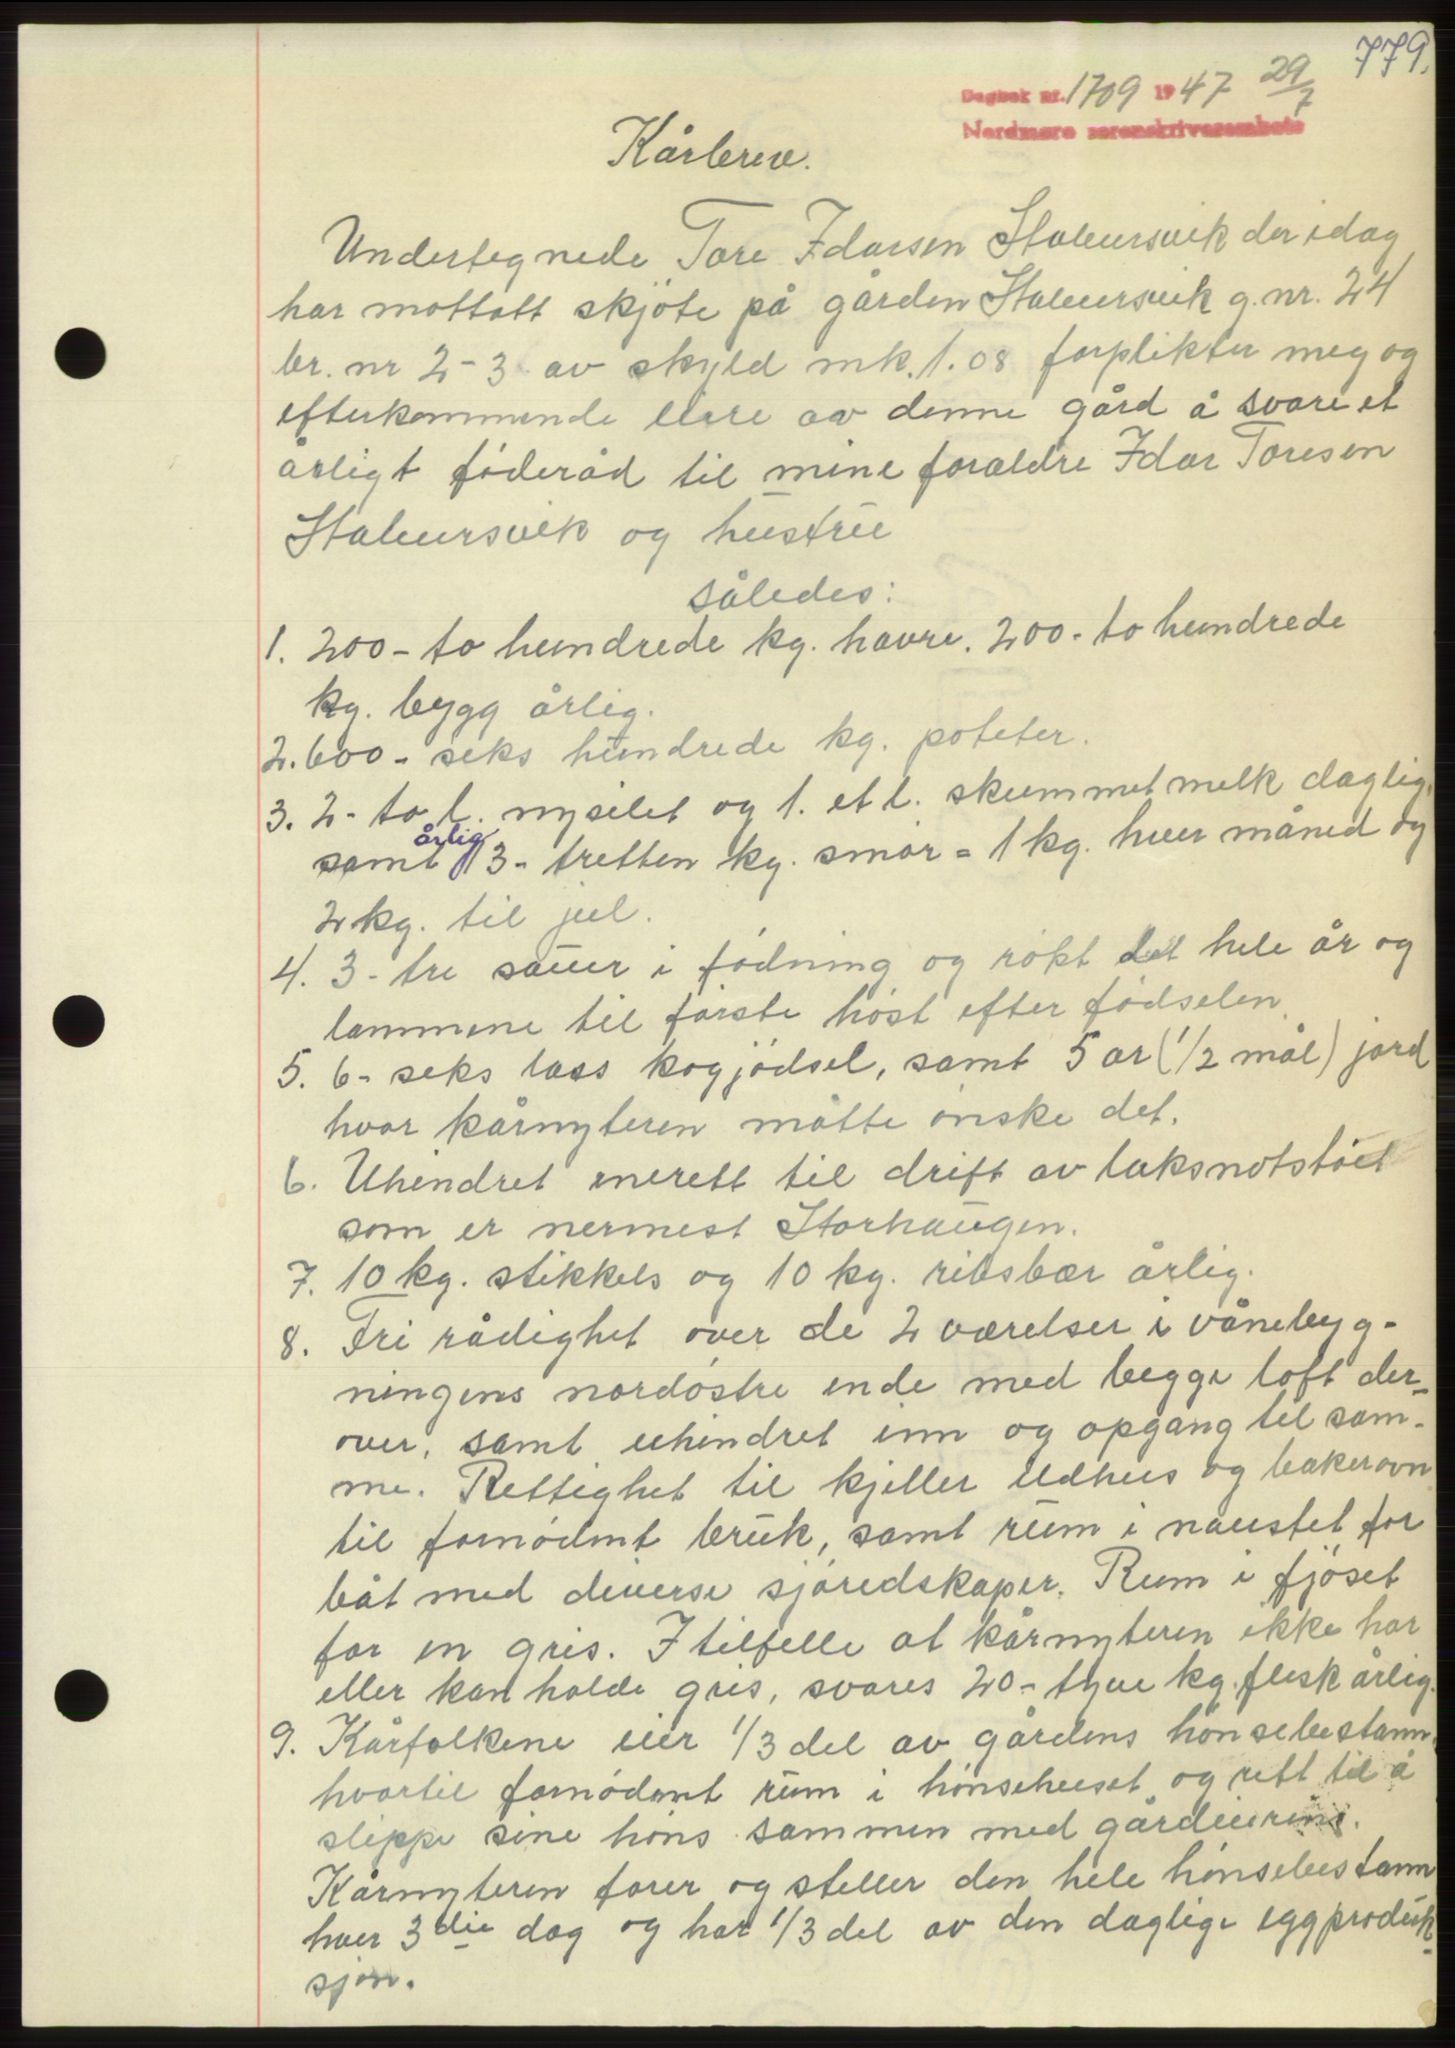 779.
Dagbok nr. 1709 1947 29/7
Nordmøre sorenskriverembete
Kårbrev.
Undertegnede Tore Idarsen Stabursvik der idag
har mottatt skjöte på gården Stabursvik g.nr. 24
br. nr 2-3 av skyld mk. 1.08 forplikter meg og
efterkommende eiere av denne gård å svare et
årligt föderåd til mine foraldre Idar Toresen
Stabursvik og hustru
således:
1. 200 - to hundrede kg. havre. 200 - to hundrede
kg. bygg årlig.
2. 600 - seks hundrede kg. poteter.
3. 2 - to l. nysilet og 1. et l. skummet melk daglig,
samt årlig 13 - tretten kg. smör = 1 kg. hver måned og
2 kg. til jul.
4. 3 - tre sauer i födning og rökt det hele år og
lammene til förste höst efter födselen.
5. 6 - seks lass kogjödsel, samt 5 ar (1/2 mål) jord
hvor kårnyteren måtte önske det.
6. Uhindret enerett til drift av laksnotstöet
som er nermest Storhaugen.
7. 10 kg. stikkels og 10 kg. ribsbær årlig.
8. Fri rådighet over de 2 værelser i vånebyg-
ningens nordöstre ende med begge loft der-
over, samt uhindret inn og opgang til sam-
me. Rettighet til kjeller udhus og bakerovn
til fornödent bruk, samt rum i naustet for
båt med diverse sjöredskaper. Rum i fjöset
for en gris. I tilfelle at kårnyteren ikke har
eller kan holde gris, svares 20 - tyve kg. flesk årlig.
9. Kårfolkene eier 1/3 del av gårdens hönsebestann,
hvortil fornödent rum i hönsehuset og rett til å
slippe sine höns sammen med gårdeierens.
Kårnyteren forer og steller den hele hönsebestann
hver 3die dag og har 1/3 del av den daglige eggproduk-
sjon.